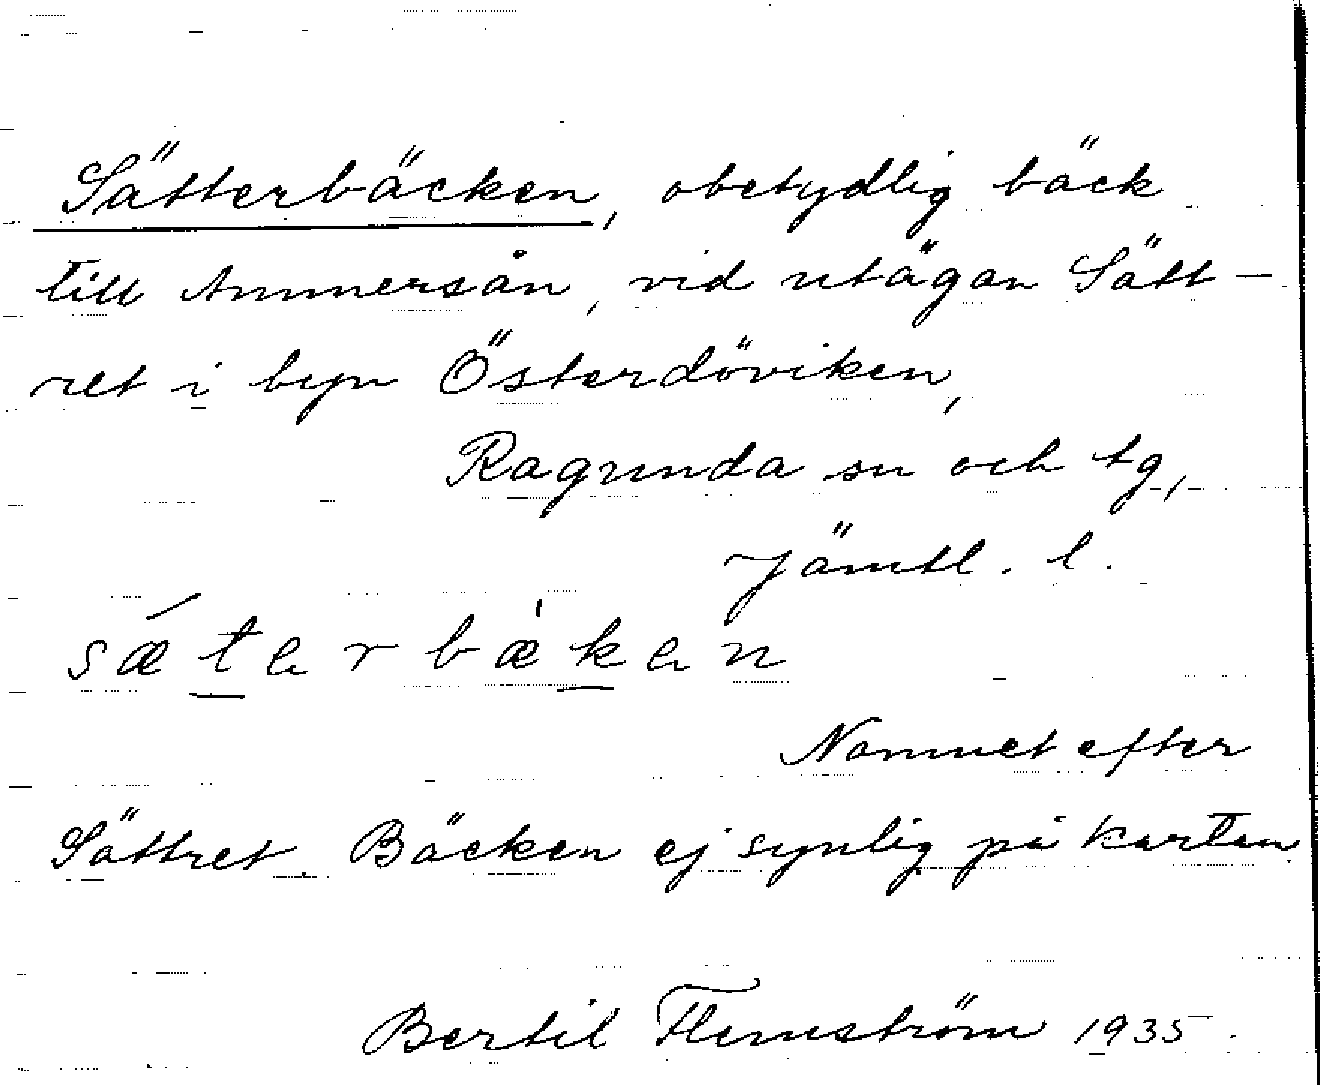 Sätterbäcken, obetydlig bäck
till Ammersån, vid utägan Sätt-
ret i byn Österdöviken,
Ragunda sn och tg,
Jämtl. l.
sæ̀tərbæ̍kən
Namnet efter
Sättret. Bäcken ej synlig på kartan.
Bertil Flemström 1935.